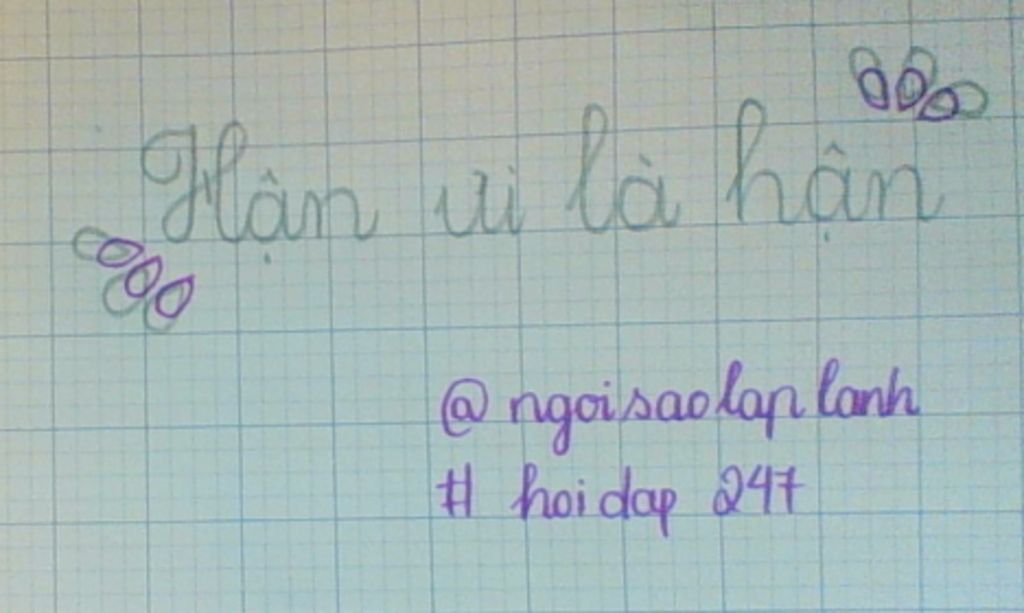 Hận ui là hận
@ngoisaolaplanh
# hoidap 247